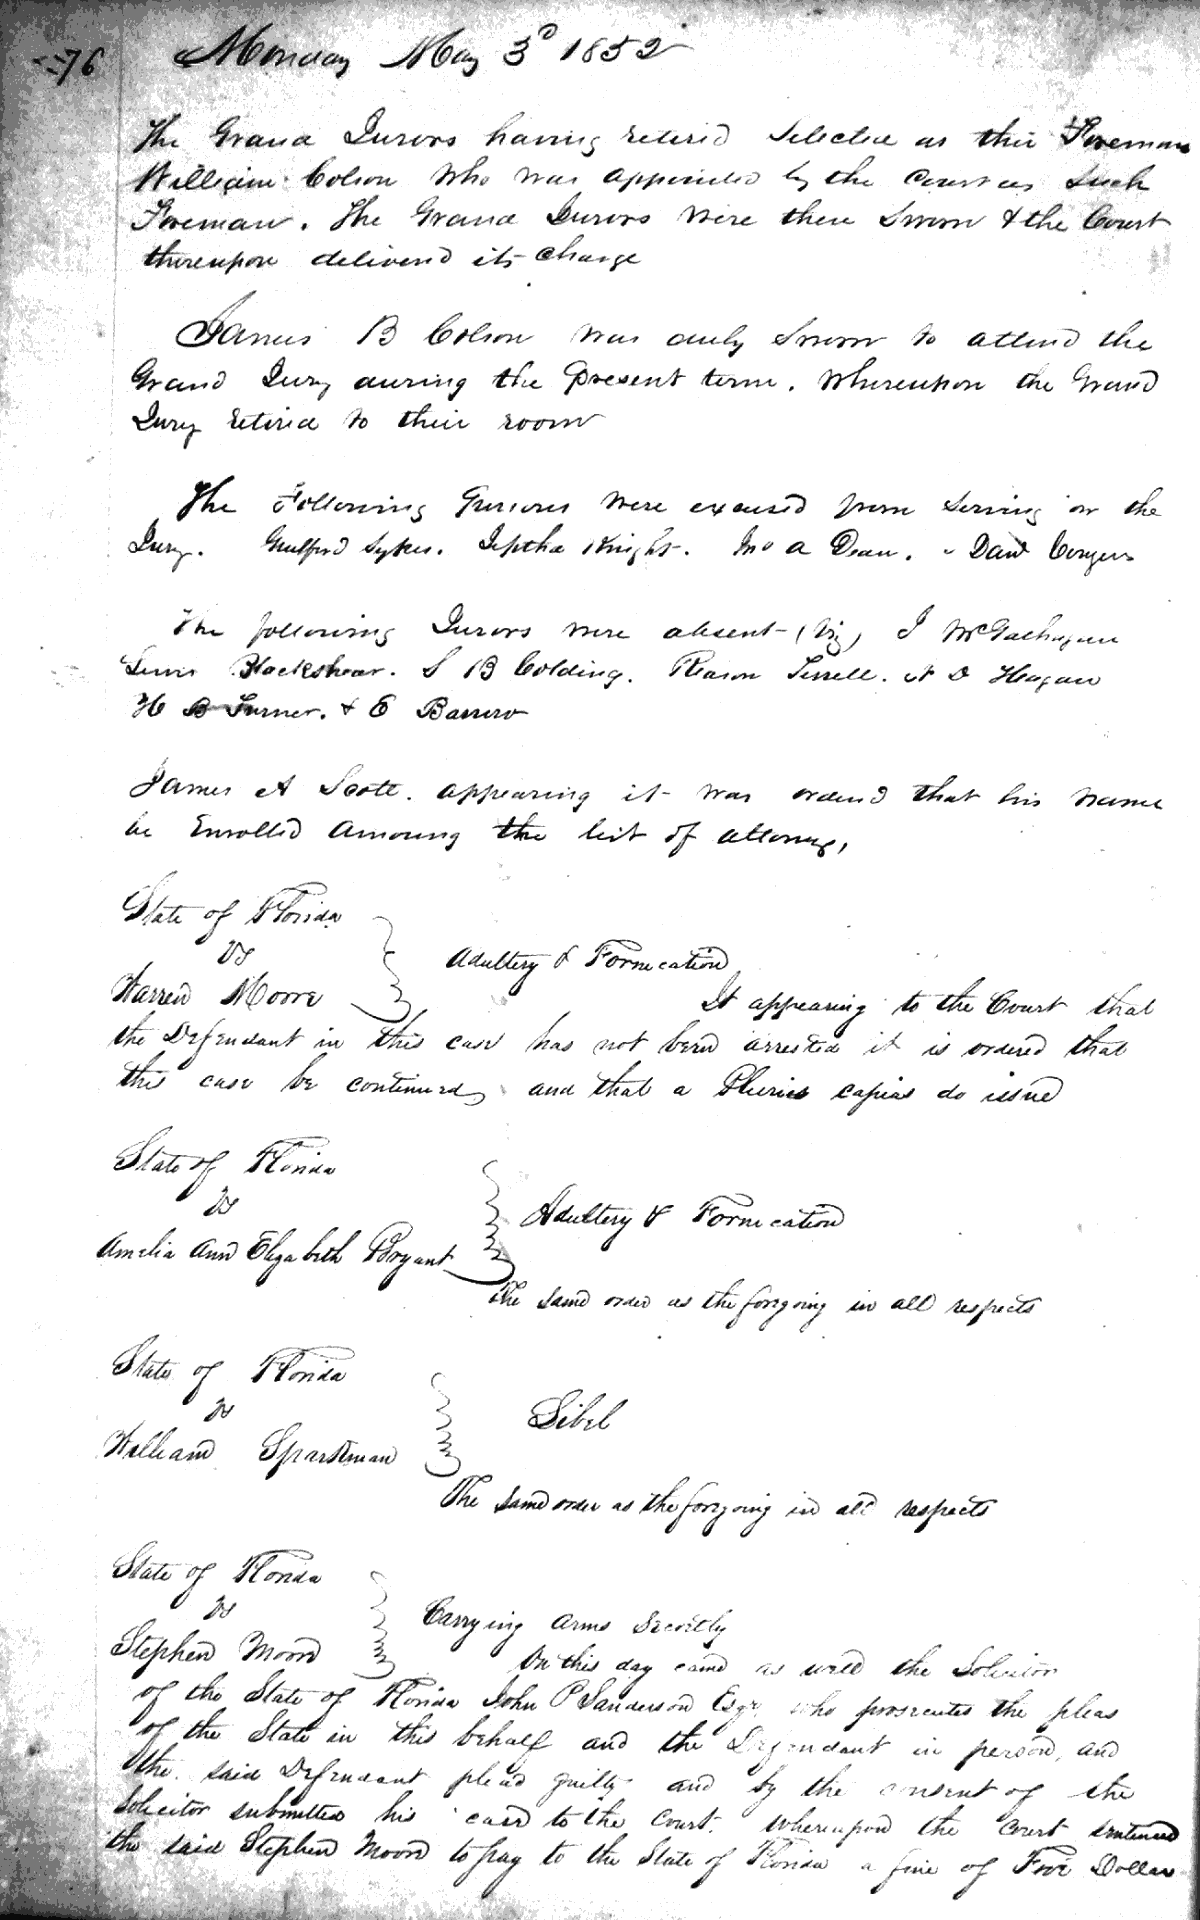 76
Monday May 3d 1852
The Grand Jurors having retired Selected as their Foreman
William Colson who was appointed by the Court as such
Foreman. The Grand Jurors were then Sworn & the Court
thereupon delivered its charge
James B Colson was duly Sworn to attend the
Grand Jury during the present term. Whereupon the Grand
Jury retired to their room
The Following Jurrors were excused from serving on the
Jury. Guilford Sykes. Jeptha Knight. Jno A Dean. David
The following Jurors were absent (viz) J McGaehagan
Lewis Blackshear. S B Colding. Reason Terrell. A D Hagan
H B Turner. & E Barrow
James A Scott. appearing it was orderd that his name
be Enrolled Amoung the list of attorneys,
State of Florida
vs
Adultery & Fornication
Warren Moore
It appearing to the Court that
the Defendant in this case has not been arrested it is ordered that
this case be continued, and that a Pluries capias do issue
State of Florida
vs
Adultery & Fornication
Amelia Ann Elizabeth Bryant
The same order as the forgoing in all respects
State of Florida
vs
Libel
William Sparkman
The same order as the forgoing in all respects
State of Florida
vs
Carrying arms Secretly
Stephen Moore
On this day came as well the Solicitor
of the State of Florida John P Sanderson Esqr who prosecutes the pleas
of the State in this behalf and the Defendant in person, and
the said Defendant plead guilty and by the consent of the
Solicitor submitted his case to the Court. whereupon the Court sentenced
the said Stephen Moore to pay to the State of Florida a fine of Five Dollars